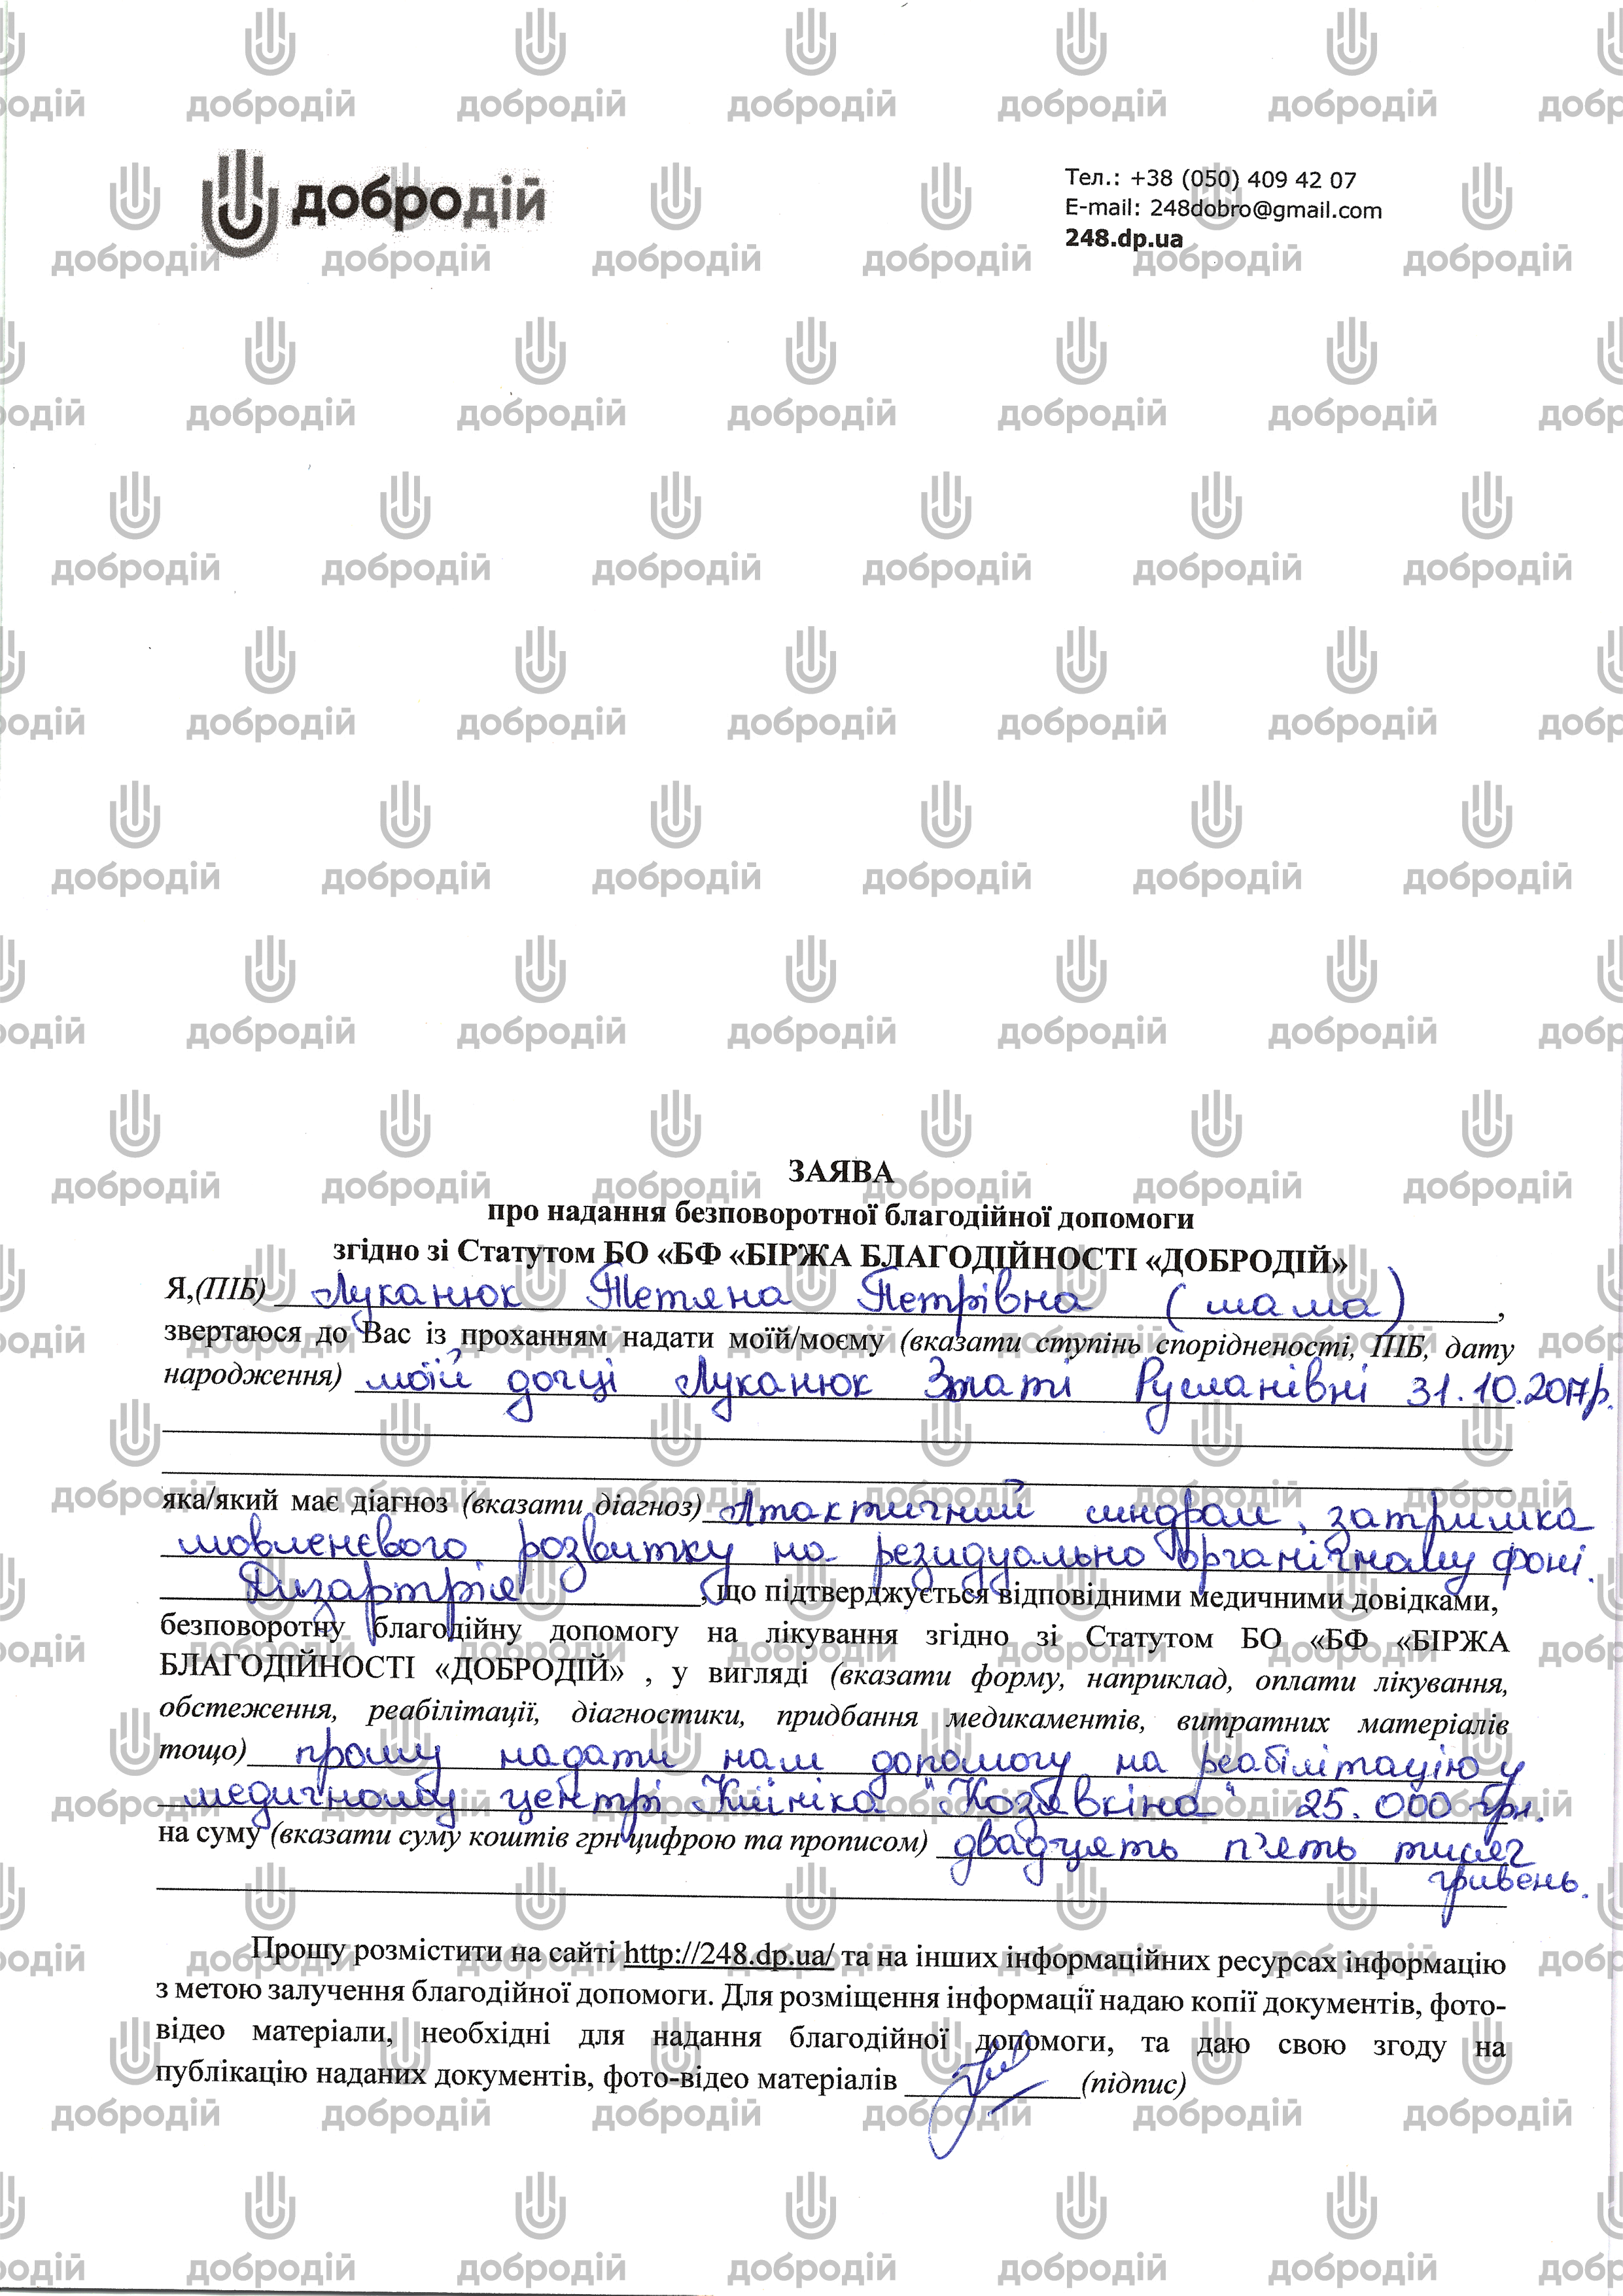 добродій
Тел.: +38 (050) 409 42 07
E-mail: 248dobro@gmail.com
248.dp.ua
ЗАЯВА
про надання безповоротної благодійної допомоги
згідно зі Статутом БО «БФ «БІРЖА БЛАГОДІЙНОСТІ «ДОБРОДІЙ»
Я,(ПІБ) Луканюк Тетяна Петрівна (мама),
звертаюся до Вас із проханням надати моїй/моєму (вказати ступінь спорідненості, ПІБ, дату
народження) моїй дочці Луканюк Златі Русланівні 31.10.2017р.
яка/який має діагноз (вказати діагноз) Атактичний синдром, затримка
мовленєвого розвитку на резидуально органічному фоні.
Дизартрія, що підтверджується відповідними медичними довідками,
безповоротну благодійну допомогу на лікування згідно зі Статутом БО «БФ «БІРЖА
БЛАГОДІЙНОСТІ «ДОБРОДІЙ» , у вигляді (вказати форму, наприклад, оплати лікування,
обстеження, реабілітації, діагностики, придбання медикаментів, витратних матеріалів
тощо) прошу надати нам допомогу на реабілітацію у
медичному центрі "Клініка "Козявкіна" 25.000 грн.
на суму (вказати суму коштів грн цифрою та прописом) двадцять п'ять тисяч
гривень.
Прошу розмістити на сайті http://248.dp.ua/ та на інших інформаційних ресурсах інформацію
з метою залучення благодійної допомоги. Для розміщення інформації надаю копії документів, фото-
відео матеріали, необхідні для надання благодійної допомоги, та даю свою згоду на
публікацію наданих документів, фото-відео матеріалів (підпис)